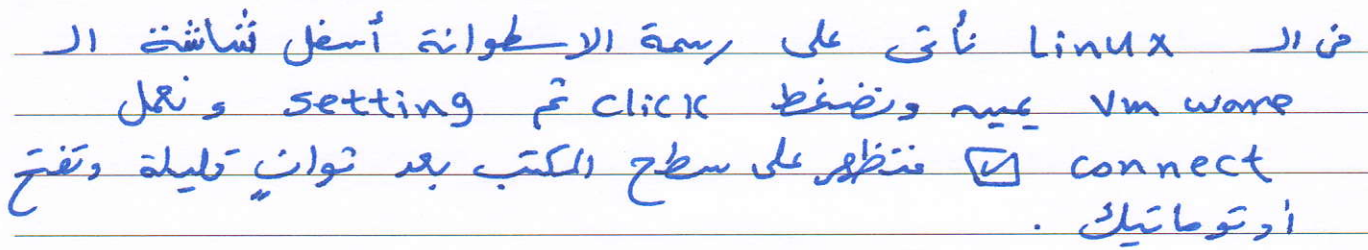 في الـ Linux نأتى على رسمة الاسطوانة أسفل شاشة الـ
Vm ware يمين ونضغط click ثم setting و نعمل
connect ☑ فتظهر على سطح المكتب بعد ثوانٍ قليلة وتفتح
أوتوماتيك .